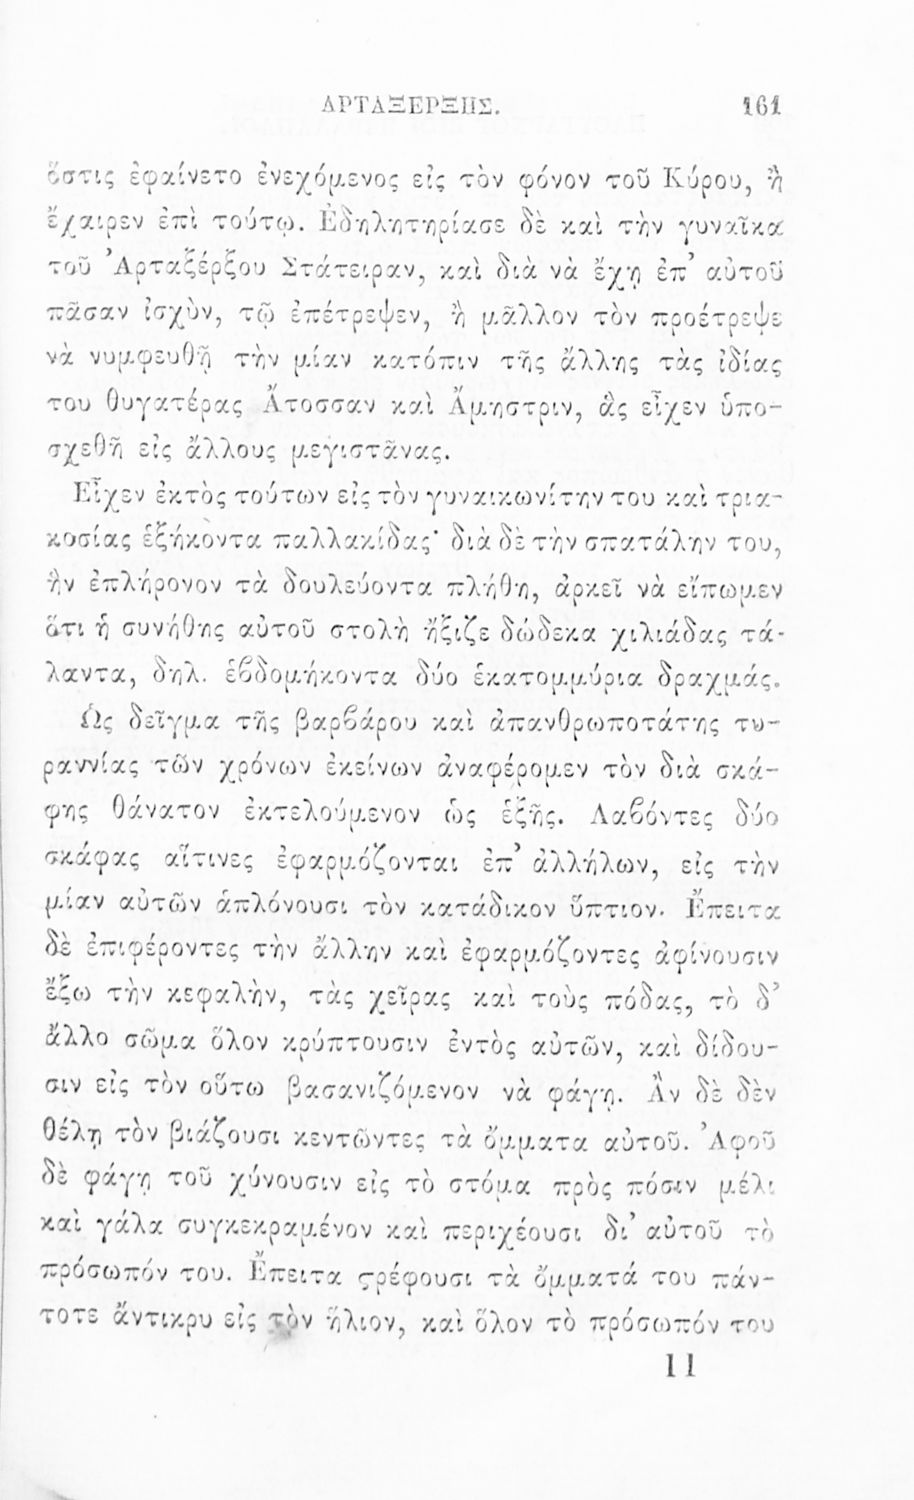 ΑΡΤΑΞΕΡΞΗΣ. 161
ὅστις ἐφαίνετο ἐνεχόμενος εἰς τὸν φόνον τοῦ Κύρου, ἢ
ἔχαιρεν ἐπὶ τούτῳ. Ἐδηλητηρίασε δὲ καὶ τὴν γυναῖκα
τοῦ Ἀρταξέρξου Στάτειραν, καὶ διὰ νὰ ἔχῃ ἐπ’ αὐτοῦ
πᾶσαν ἰσχὺν, τῷ ἐπέτρεψεν, ἢ μᾶλλον τὸν προέτρεψε
νὰ νυμφευθῇ τὴν μίαν κατόπιν τῆς ἄλλης τὰς ἰδίας
του θυγατέρας Ἄτοσσαν καὶ Ἄμηστριν, ἃς εἶχεν ὑπο-
σχεθῆ εἰς ἄλλους μεγιστᾶνας.
Εἶχεν ἐκτὸς τούτων εἰς τὸν γυναικωνίτην του καὶ τρια-
κοσίας ἑξήκοντα παλλακίδας· διὰ δὲ τὴν σπατάλην του,
ἣν ἐπλήρονον τὰ δουλεύοντα πλήθη, ἀρκεῖ νὰ εἴπωμεν
ὅτι ἡ συνήθης αὐτοῦ στολὴ ἤξιζε δώδεκα χιλιάδας τά-
λαντα, δηλ. ἑβδομήκοντα δύο ἑκατομμύρια δραχμάς.
Ὡς δεῖγμα τῆς βαρβάρου καὶ ἀπανθρωποτάτης τυ-
ραννίας τῶν χρόνων ἐκείνων ἀναφέρομεν τὸν διὰ σκά-
φης θάνατον ἐκτελούμενον ὡς ἑξῆς. Λαβόντες δύο
σκάφας αἵτινες ἐφαρμόζονται ἐπ’ ἀλλήλων, εἰς τὴν
μίαν αὐτῶν ἁπλόνουσι τὸν κατάδικον ὕπτιον. Ἔπειτα
δὲ ἐπιφέροντες τὴν ἄλλην καὶ ἐφαρμόζοντες ἀφίνουσιν
ἔξω τὴν κεφαλὴν, τὰς χεῖρας καὶ τοὺς πόδας, τὸ δ’
ἄλλο σῶμα ὅλον κρύπτουσιν ἐντὸς αὐτῶν, καὶ δίδου-
σιν εἰς τὸν οὕτω βασανιζόμενον νὰ φάγῃ. Ἂν δὲ δὲν
θέλῃ τὸν βιάζουσι κεντῶντες τὰ ὄμματα αὐτοῦ. Ἀφοῦ
δὲ φάγῃ τοῦ χύνουσιν εἰς τὸ στόμα πρὸς πόσιν μέλι
καὶ γάλα συγκεκραμένον καὶ περιχέουσι δι’ αὐτοῦ τὸ
πρόσωπόν του. Ἔπειτα ϛρέφουσι τὰ ὄμματά του πάν-
τοτε ἄντικρυ εἰς τὸν ἥλιον, καὶ ὅλον τὸ πρόσωπόν του
11